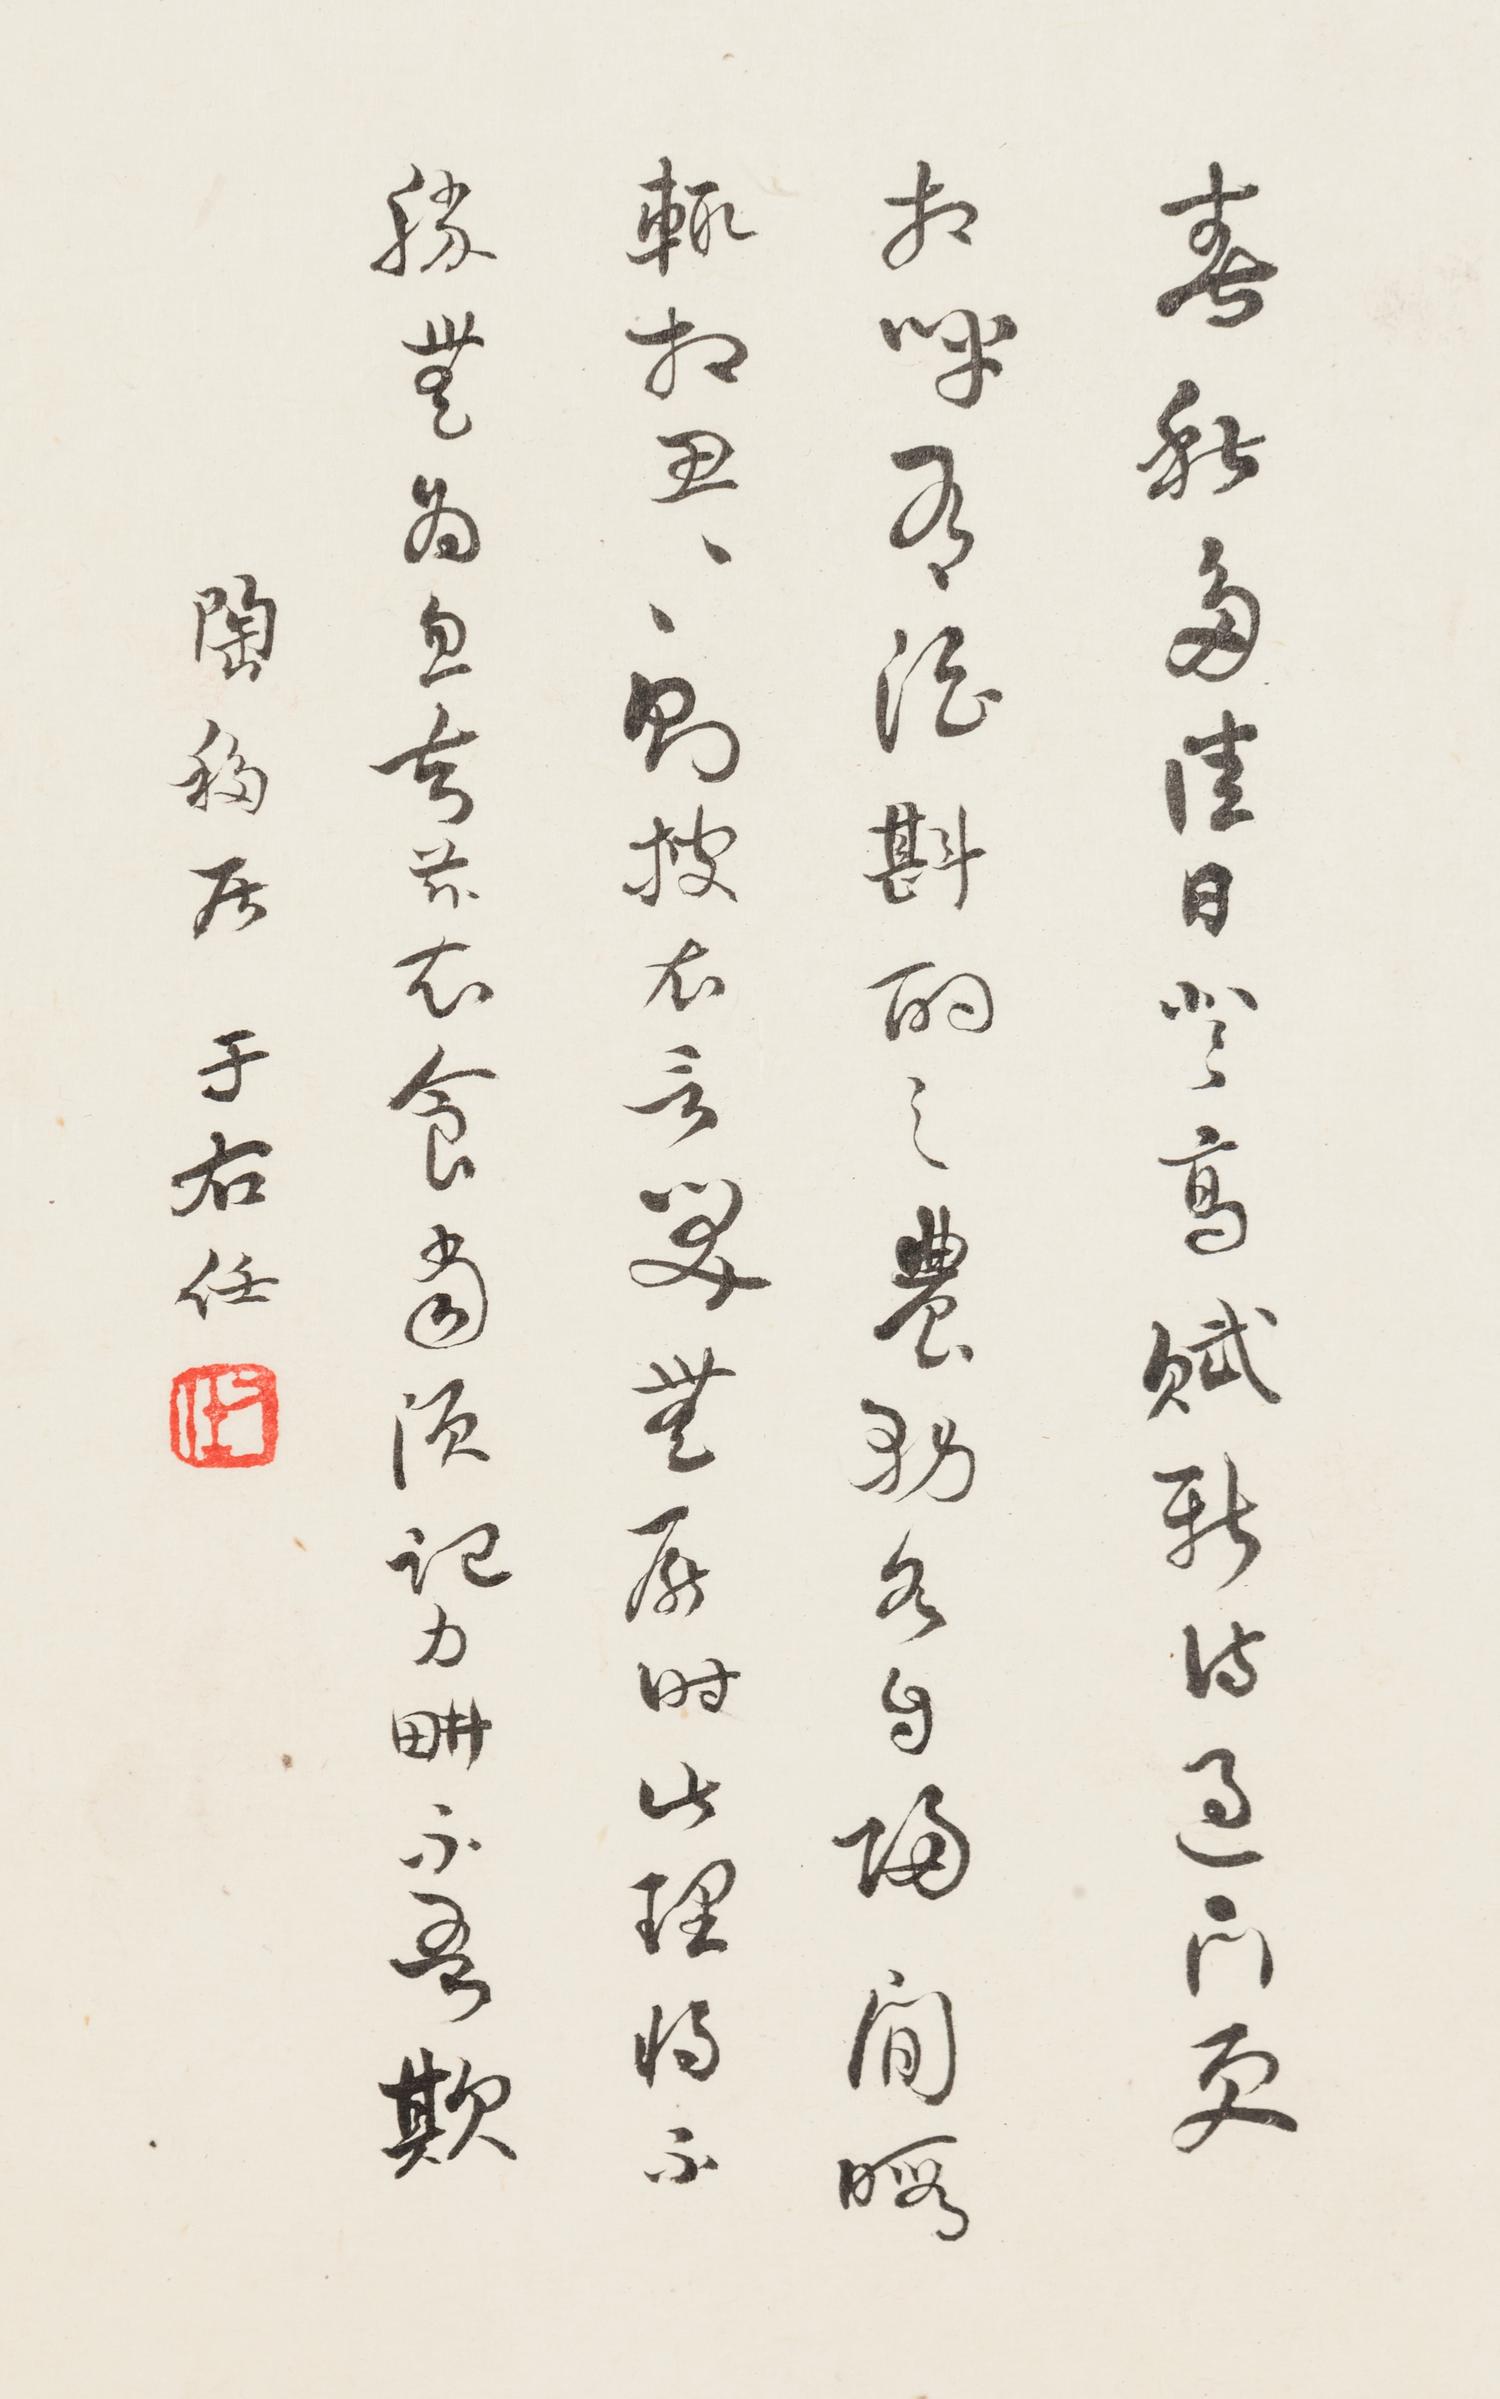 春秋多佳日登高賦新詩過門更
相呼有酒斟酌之農務各自歸閒暇
輒相思、、則披衣言笑無厭時此理將不
勝無為忽去茲衣食當須記力耕不吾欺
陶移居 于右任